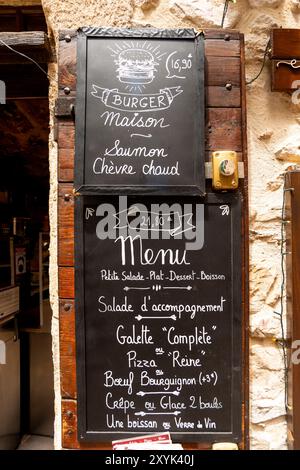 16,90
BURGER
Maison
Saumon
Chèvre chaud
21.80
Menu
Petite Salade - Plat - Dessert - Boisson
Salade d'accompagnement
Galette "Complète"
ou
Pizza "Reine"
ou
Bœuf Bourguignon (+3€)
Crêpe ou Glace 2 boules
Une boisson ou Verre de Vin